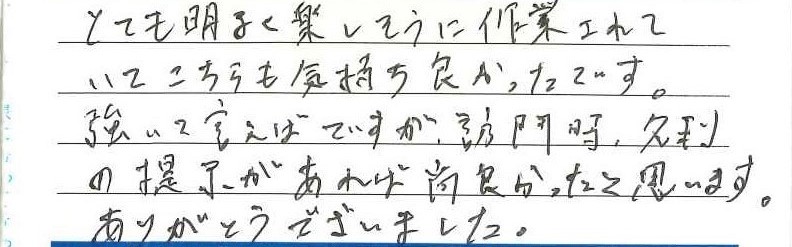 とても明るく楽しそうに作業されて
いてこちらも気持ち良かったです。
強いて言えばですが、訪問時、名刺
の提示があれば尚良かったと思います。
ありがとうございました。